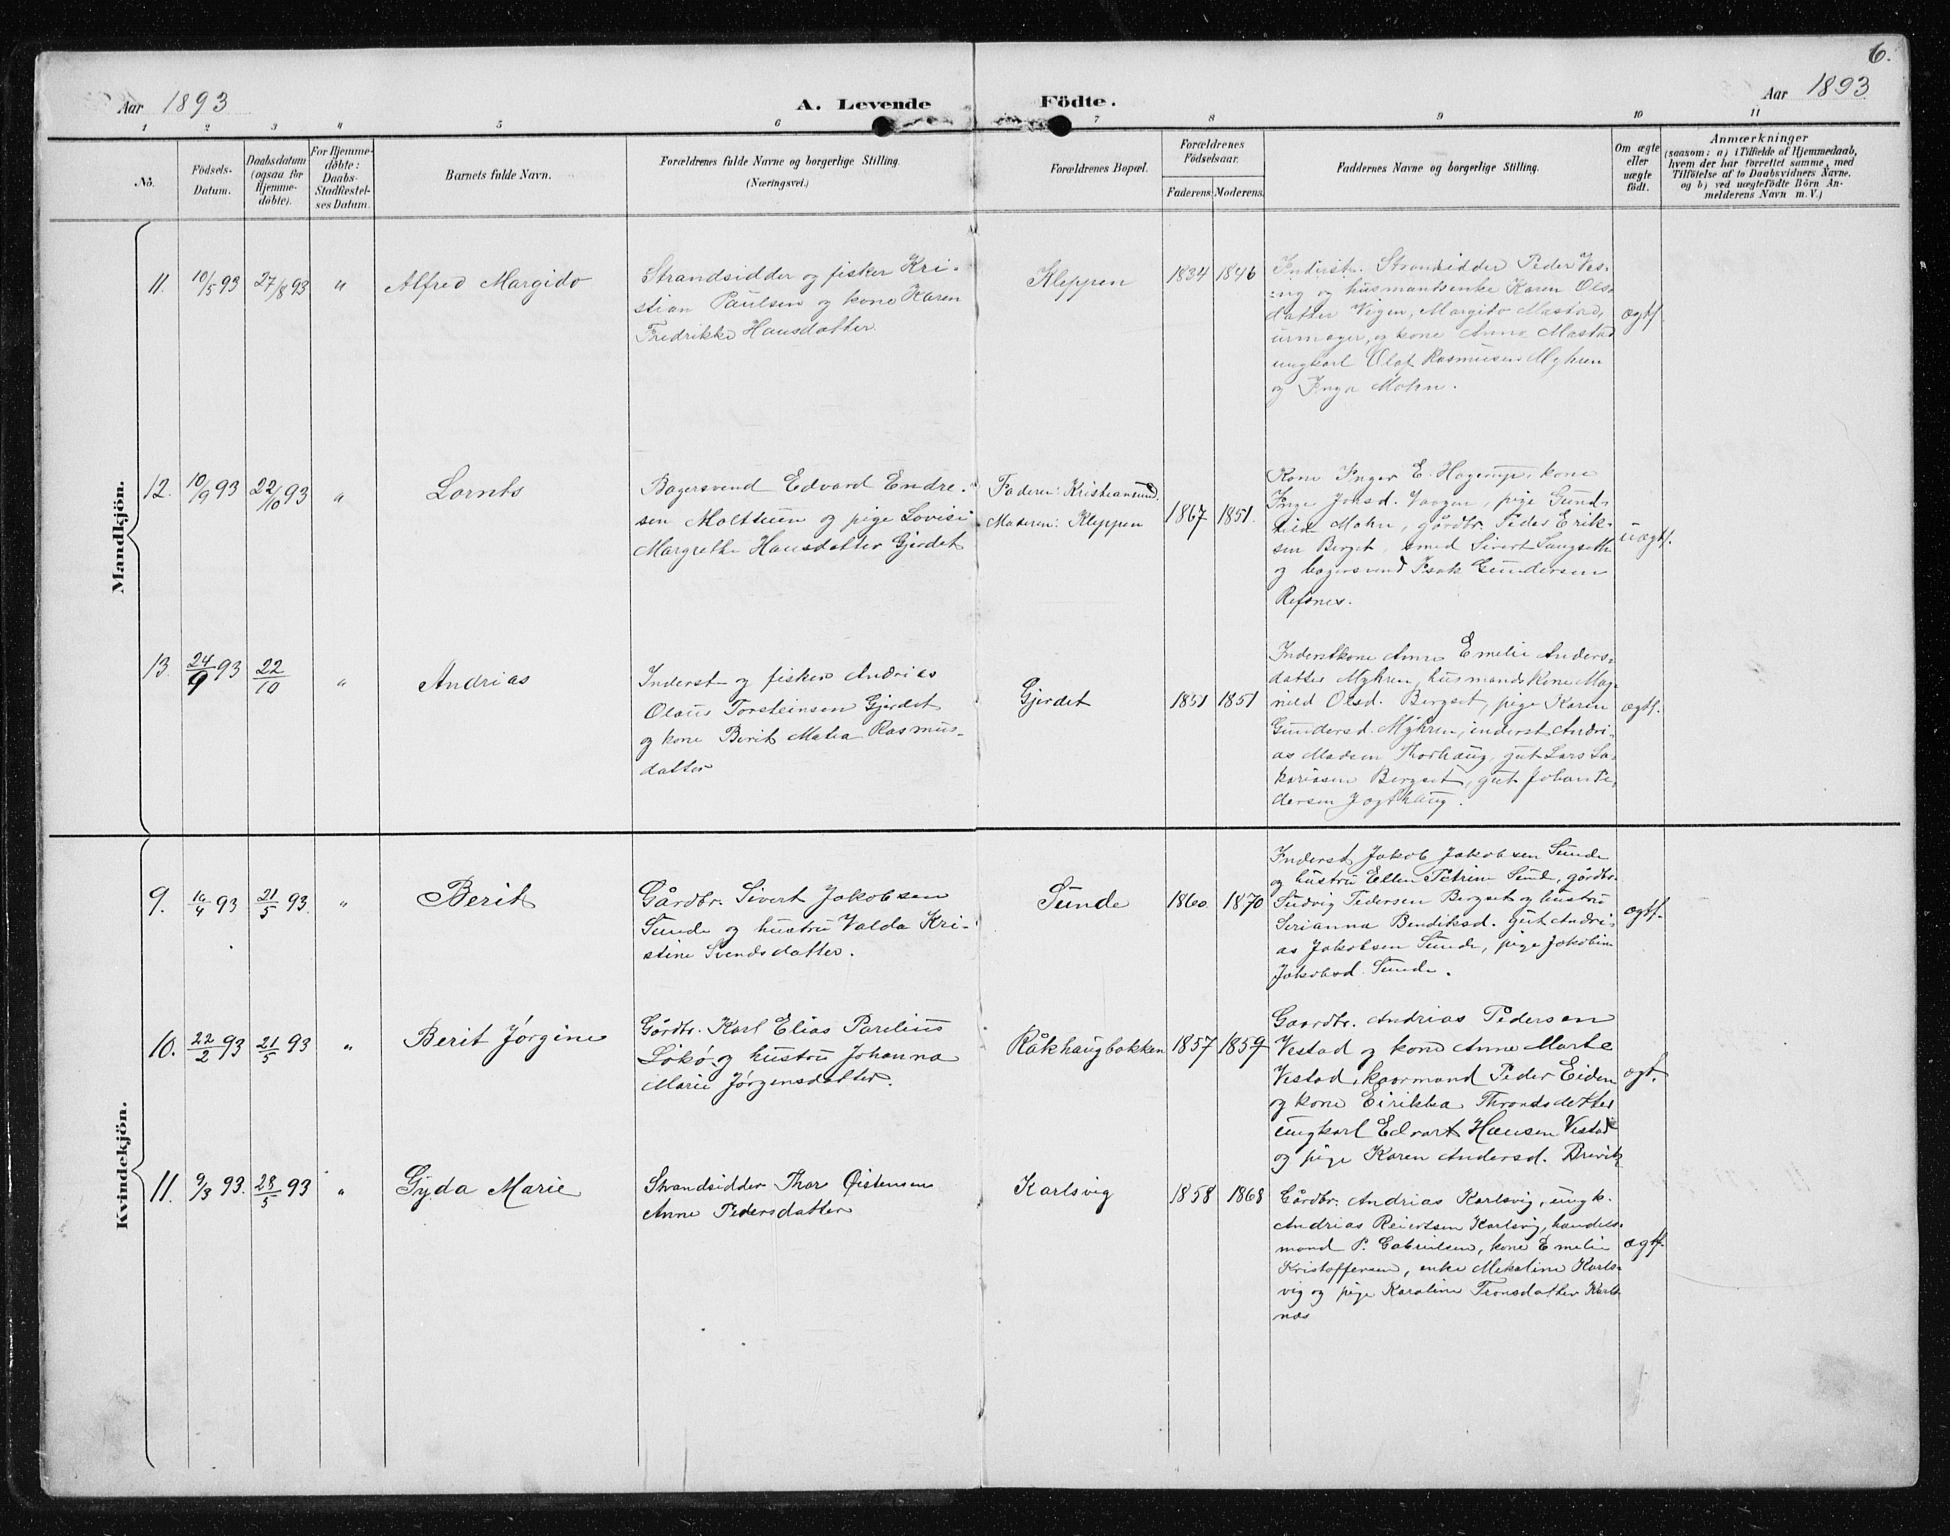 6.
Aar 1893
A. Levende Födte.
Aar 1893
1 2 3 4 5 6 7 8 9 10 11
No.
Födsels-Datum.
Daabsdatum (ogsaa for Hjemmedöbte).
For Hjemmedöbte: Daabs-Stadfæstelses Datum.
Barnets fulde Navn.
Forældrenes fulde Navne og borgerlige Stilling.
(Næringsvei.)
Forældrenes Bopæl.
Forældrenes Födselsaar.
Faderens. Moderens.
Faddernes Navne og borgerlige Stilling.
Om ægte eller uægte födt.
Anmærkninger
(saasom: a) i Tilfælde af Hjemmedaab,
hvem der har forrettet samme, med
Tilföielse af to Daabsvidners Navne,
og b) ved uægtefödte Börn An-
melderens Navn m. V.)
Mandkjön.
11. 10/5 93 27/8 93 " Alfred Margido
Strandsidder og fisker Kri-
stian Paulsen og kone Karen
Fredrikke Hansdatter
Kleppen
1834 1846
Inderst. Strandsidder Peder Ves-
:ng og husmandsenke Karen Ols-
datter Vigen, Margido Mastad,
urmager, og kone Anna Mastad
ungkarl Olaf Rasmusen Myhren
og Inga Mohn.
ægtf.
12. 10/9 93 22/10 93 " Lornts
Bagersvend Edvard Endre-
sen Molttuen og pige Lovise
Margrethe Hansdatter Gjerdet
Faderen: Kristiansund.
Moderen: Kleppen
1867 1851.
Kone Inger E. Hagerup, kone
Inge Johsd. Vaagen, pige Gund-
hild Mohn, gårdbr. Peder Erik-
sen Berget, smed Sivert Langseth
og bagersvend Isak Gundersen
Refsnes.
uægtf.
13. 24/9 93 22/10 " Andrias
Inderst og fisker Andrias
Olaus Torsteinsen Gjerdet
og kone Berit Malea Rasmus-
datter
Gjerdet
1851 1851
Inderstkone Anne Emelie Anders-
datter Myhren, husmandskone Mag-
nild Olsd. Bergset, pige Karen
Gundersd. Myhren, inderst Andri-
as Madsen Thorhaug, gut Lars Sa-
kariasen Bergset, gut Johan Pe-
dersen Jagthaug.
ægtf.
Kvindekjön.
9. 16/4 93 21/5 93. " Berit
Gårdbr. Sivert Jakobsen
Sunde og hustru Valda Kri-
stine Svendsdatter.
Sunde
1860 1870
Inderst Jakob Jakobsen Sunde
og hustru Ellen Petrine Sund, gårdbr.
Ludvig Pedersen Bergset og hustru
Serianna Bendiksd. gut Andri-
as Jakobsen Sunde, pige Jakobine
Jakobsd. Sunde.
ægtf.
10. 22/2 93 21/5 93 " Berit Jørgine
Gårdbr. Karl Elias Parelius
Løkø og hustru Johanna
Marie Jørgensdatter.
Råkhaugbakken
1857 1859
Gaardbr. Andrias Pedersen
Vestad og kone Anne Marte
Vestad, kaarmand Peder Eiden
og kone Eirikka Throndsdatter
ungkarl Edvart Hansen Vestad
og pige Karen Andersd. Brevik
ægt.
11. 9/3 93. 28/5 93 " Gyda Marie
Strandsidder Thor Øistensen
Anne Pedersdatter
Karlsvig
1858 1868
Gårdbr. Andrias Karlsvig, ungk.
Andrias Reiertsen Karlsvig, handels-
mand P. Gabrielsen, kone Emelie
Kristoffersen, enke Mekaline Karls-
vig og pige Karoline Tronsdatter Karls-
næs
ægtf.